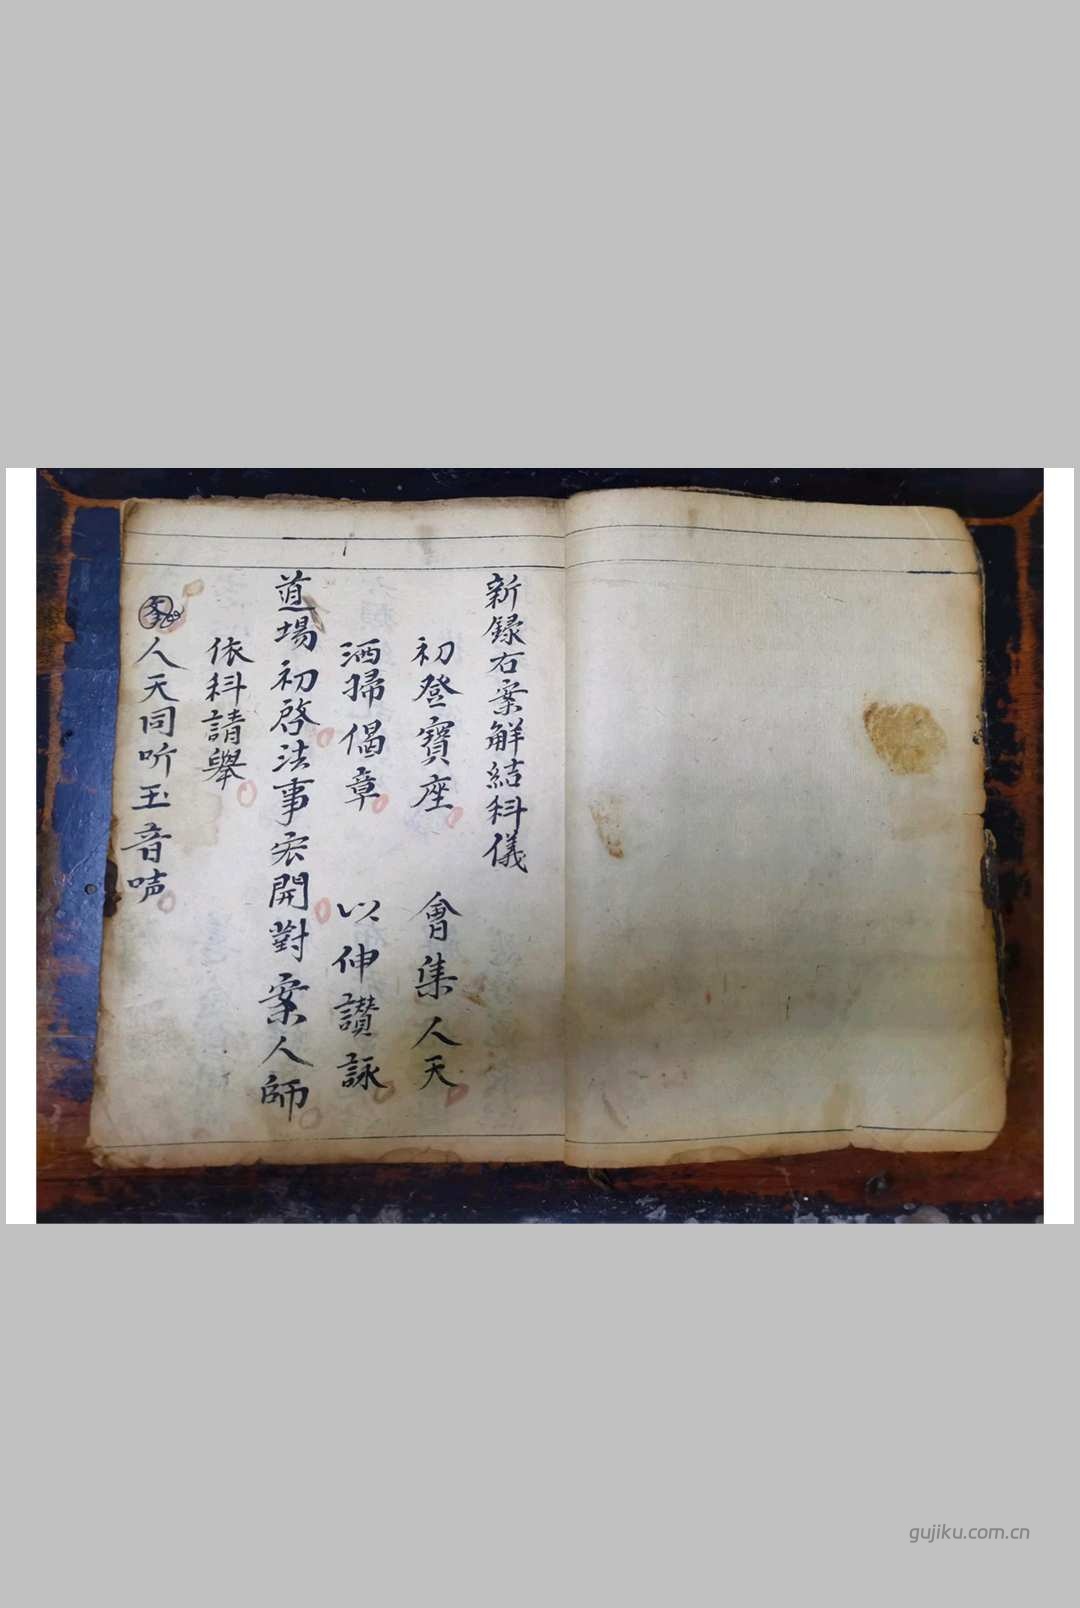 新録右案解結科儀
初登寶座 會集人天
洒掃偈章 以伸讃詠
道場初啓法事宏開對案人師
依科請舉
人天同听玉音呠
gujiku.com.cn